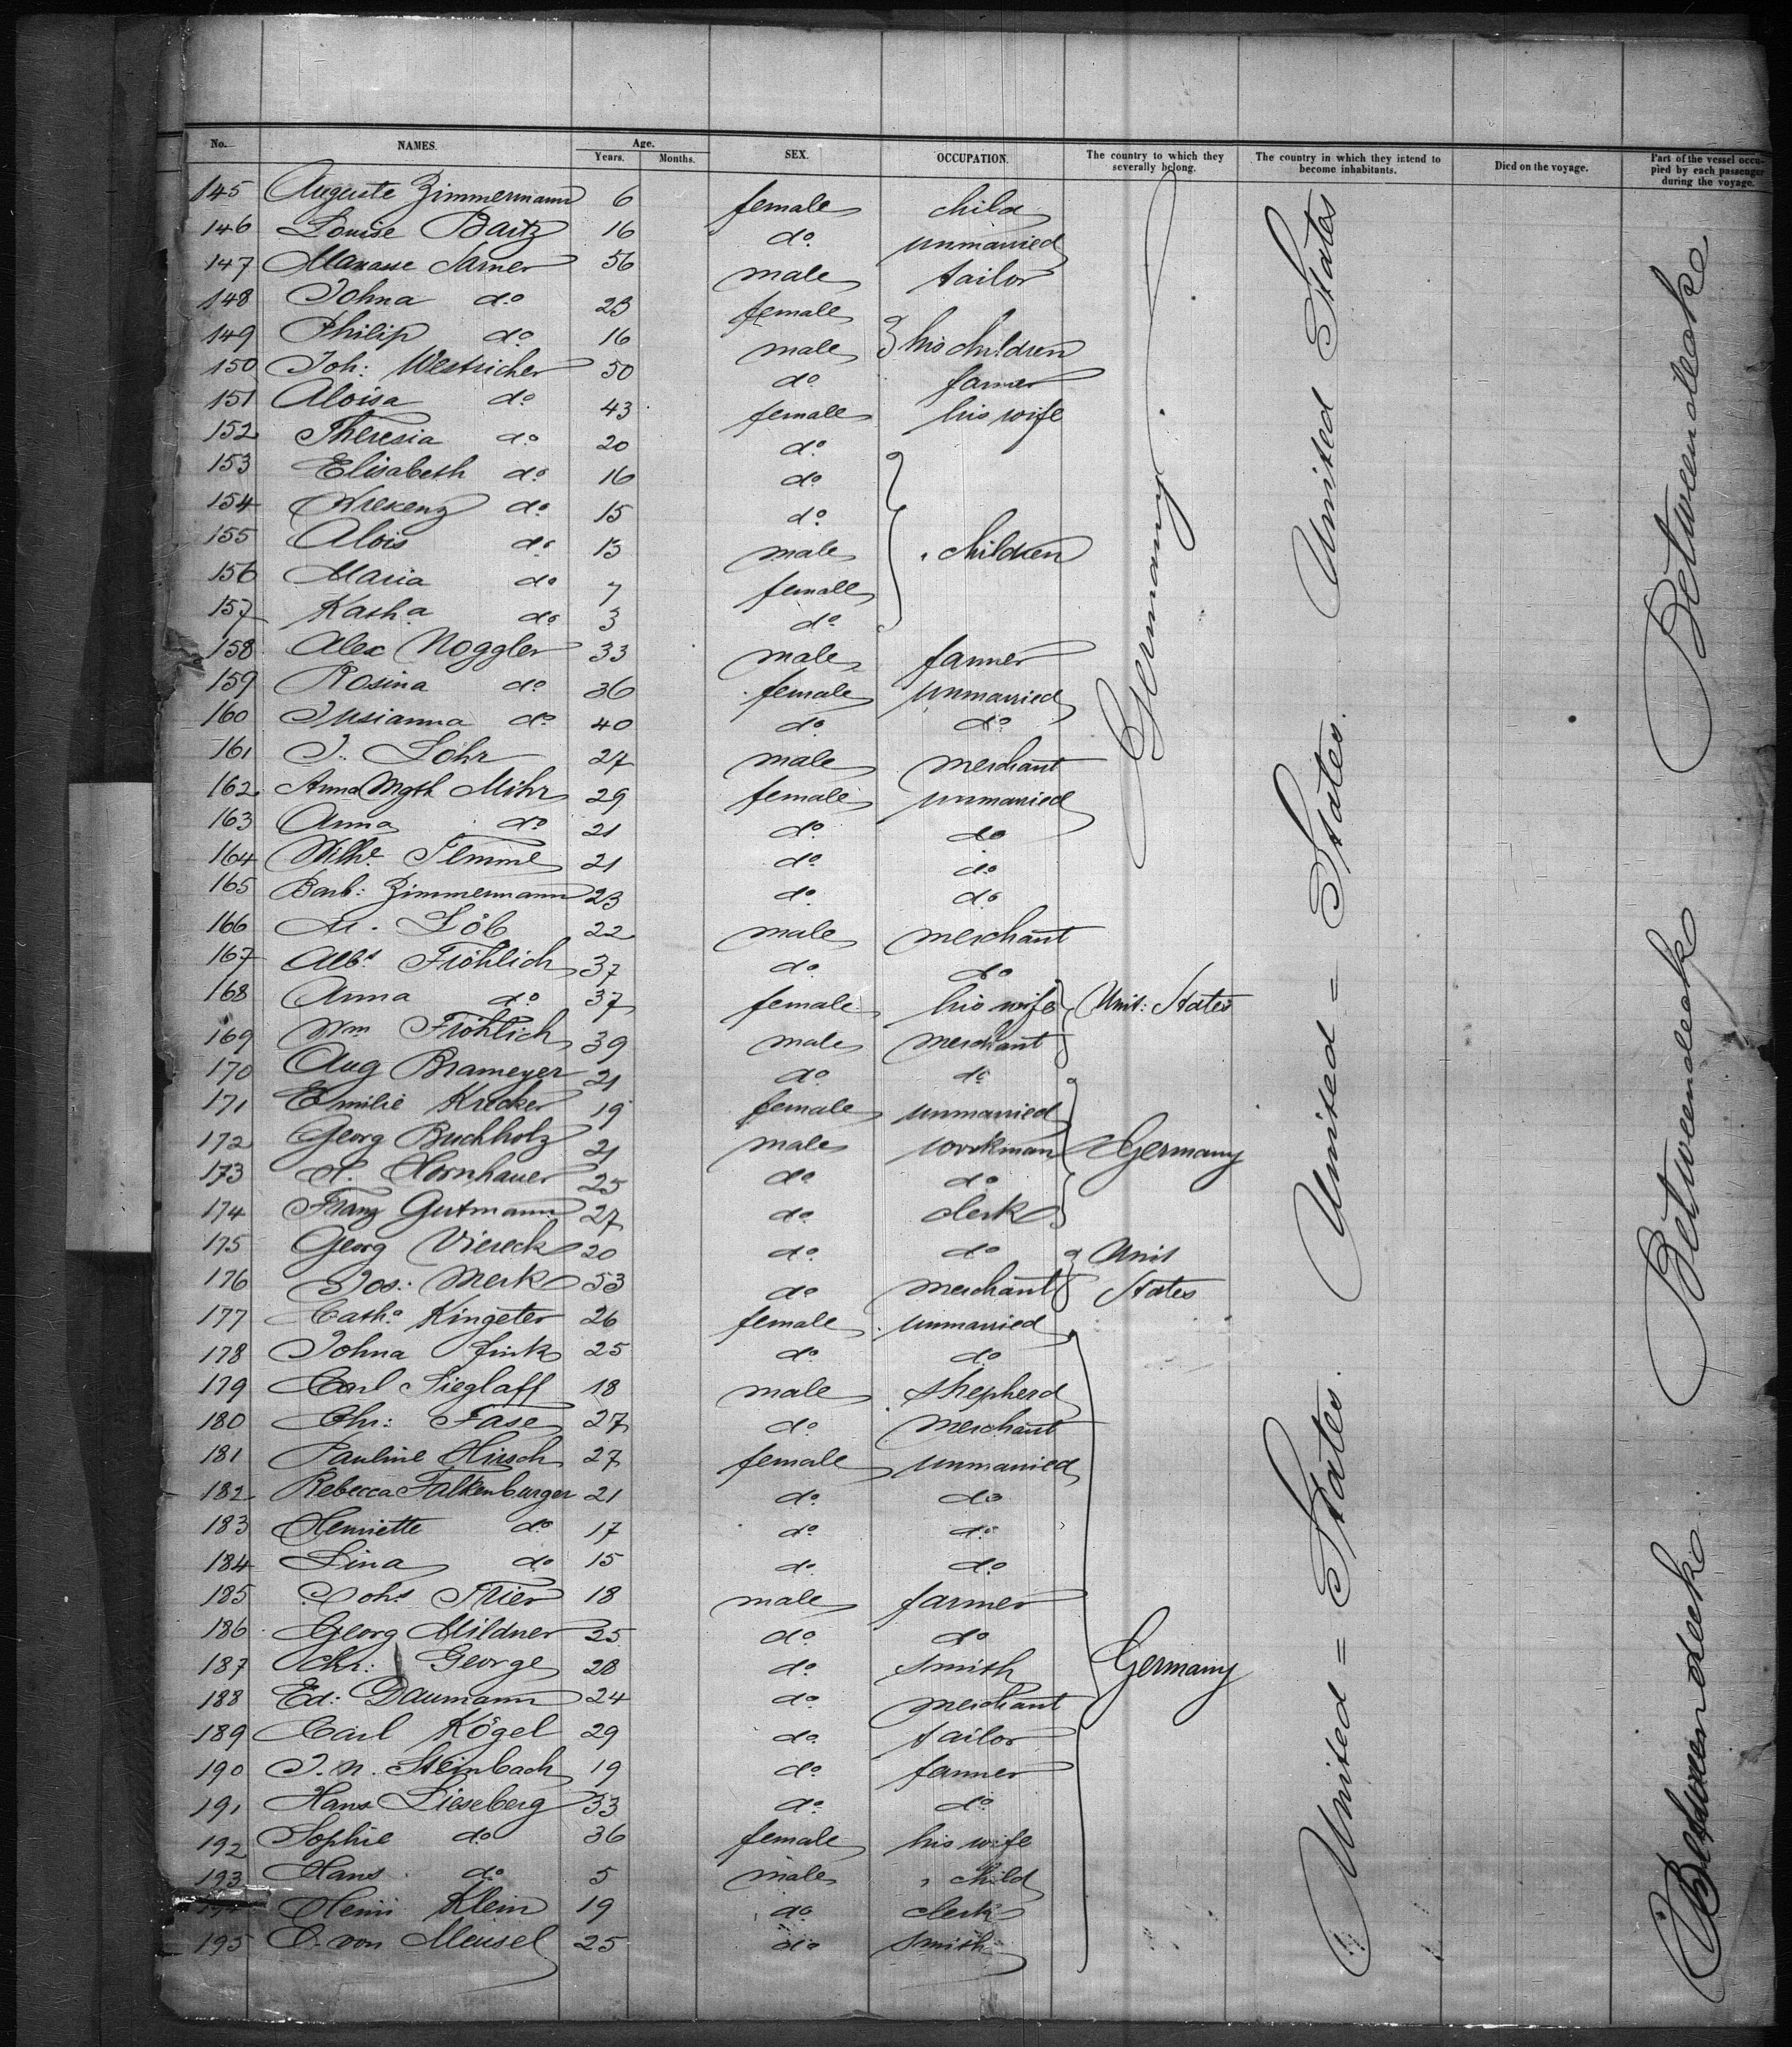 No. NAMES. Age. Years. Months. SEX. OCCUPATION. The country to which they severally belong. The country in which they intend to become inhabitants. Died on the voyage. Part of the vessel occupied by each passenger during the voyage.
145 Auguste Zimmermann 6 female child
146 Louise Baitz 16 do unmarried
147 Manasse Sarner 56 male tailor
148 Johna do 23 female
149 Philip do 16 male } his children
150 Joh: Westricher 50 do farmer
151 Aloisa do 43 female his wife
152 Theresia do 20 do
153 Elisabeth do 16 do
154 Krekenz do 15 do
155 Alois do 13 male children
156 Maria do 7 female
157 Katha do 3 do
158 Alex Noggler 33 male farmer
159 Rosina do 36 female unmarried
160 Jusianna do 40 do do
161 J. Löhr 27 male merchant
162 Anna Mgth Mihr 29 female unmarried
163 Anna do 21 do do
164 Wilhe Temme 21 do do
165 Barb: Zimmermann 23 do do
166 M. Löb 22 male merchant
167 Albt Fröhlich 37 do do
168 Anna do 37 female his wife Unit: States
169 Wm Fröhlich 39 male merchant
170 Aug Brameyer 21 do do
171 Emilie Krecker 19 female unmarried
172 Georg Buchholz 21 male workman Germany
173 H. Hornhauer 25 do do
174 Franz Gutmann 27 do clerk
175 Georg Viereck 20 do do Unit
176 Jos: Merk 53 do merchant States
177 Catha Kingeter 26 female unmarried
178 Johna Fink 25 do do
179 Carl Sieglaff 18 male shepherd
180 Chr: Fase 27 do merchant
181 Pauline Hirsch 27 female unmarried
182 Rebecca Falkenburger 21 do do
183 Henriette do 17 do do
184 Lina do 15 do do
185 Johs Trier 18 male farmer
186 Georg Mildner 25 do do
187 Chr: George 28 do smith Germany
188 Ed: Daumann 24 do merchant
189 Carl Kögel 29 do tailor
190 J. N. Steinbach 19 do farmer
191 Hans Lieseberg 33 do do
192 Sophie do 36 female his wife
193 Hans do 5 male child
Heinr Klein 19 do clerk
195 O. von Meusel 25 do smith
Germany
United States
United = States.
United = States.
Betweendecks
Betweendecks
Betweendecks